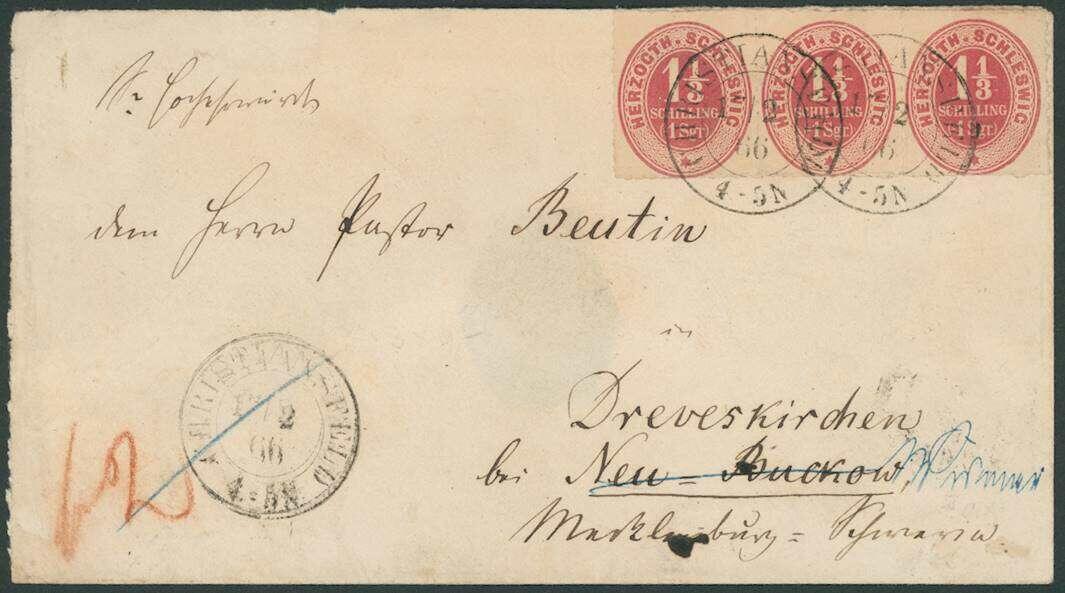 HERZOGTH. SCHLESWIG 1⅓ SCHILLING 1¼ Sgr.
HERZOGTH. SCHLESWIG 1⅓ SCHILLING 1¼ Sgr.
HERZOGTH. SCHLESWIG 1⅓ SCHILLING 1¼ Sgr.
CHRISTIANSFELD
2
66
4-5N
CHRISTIANSFELD
2
66
4-5N
Sr Hochehrwürden
dem Herrn Pastor Beutin
in
Dreveskirchen
bei Neu-Buckow, Wismar
Mecklenburg=Schwerin
CHRISTIANSFELD
2
66
4-5N